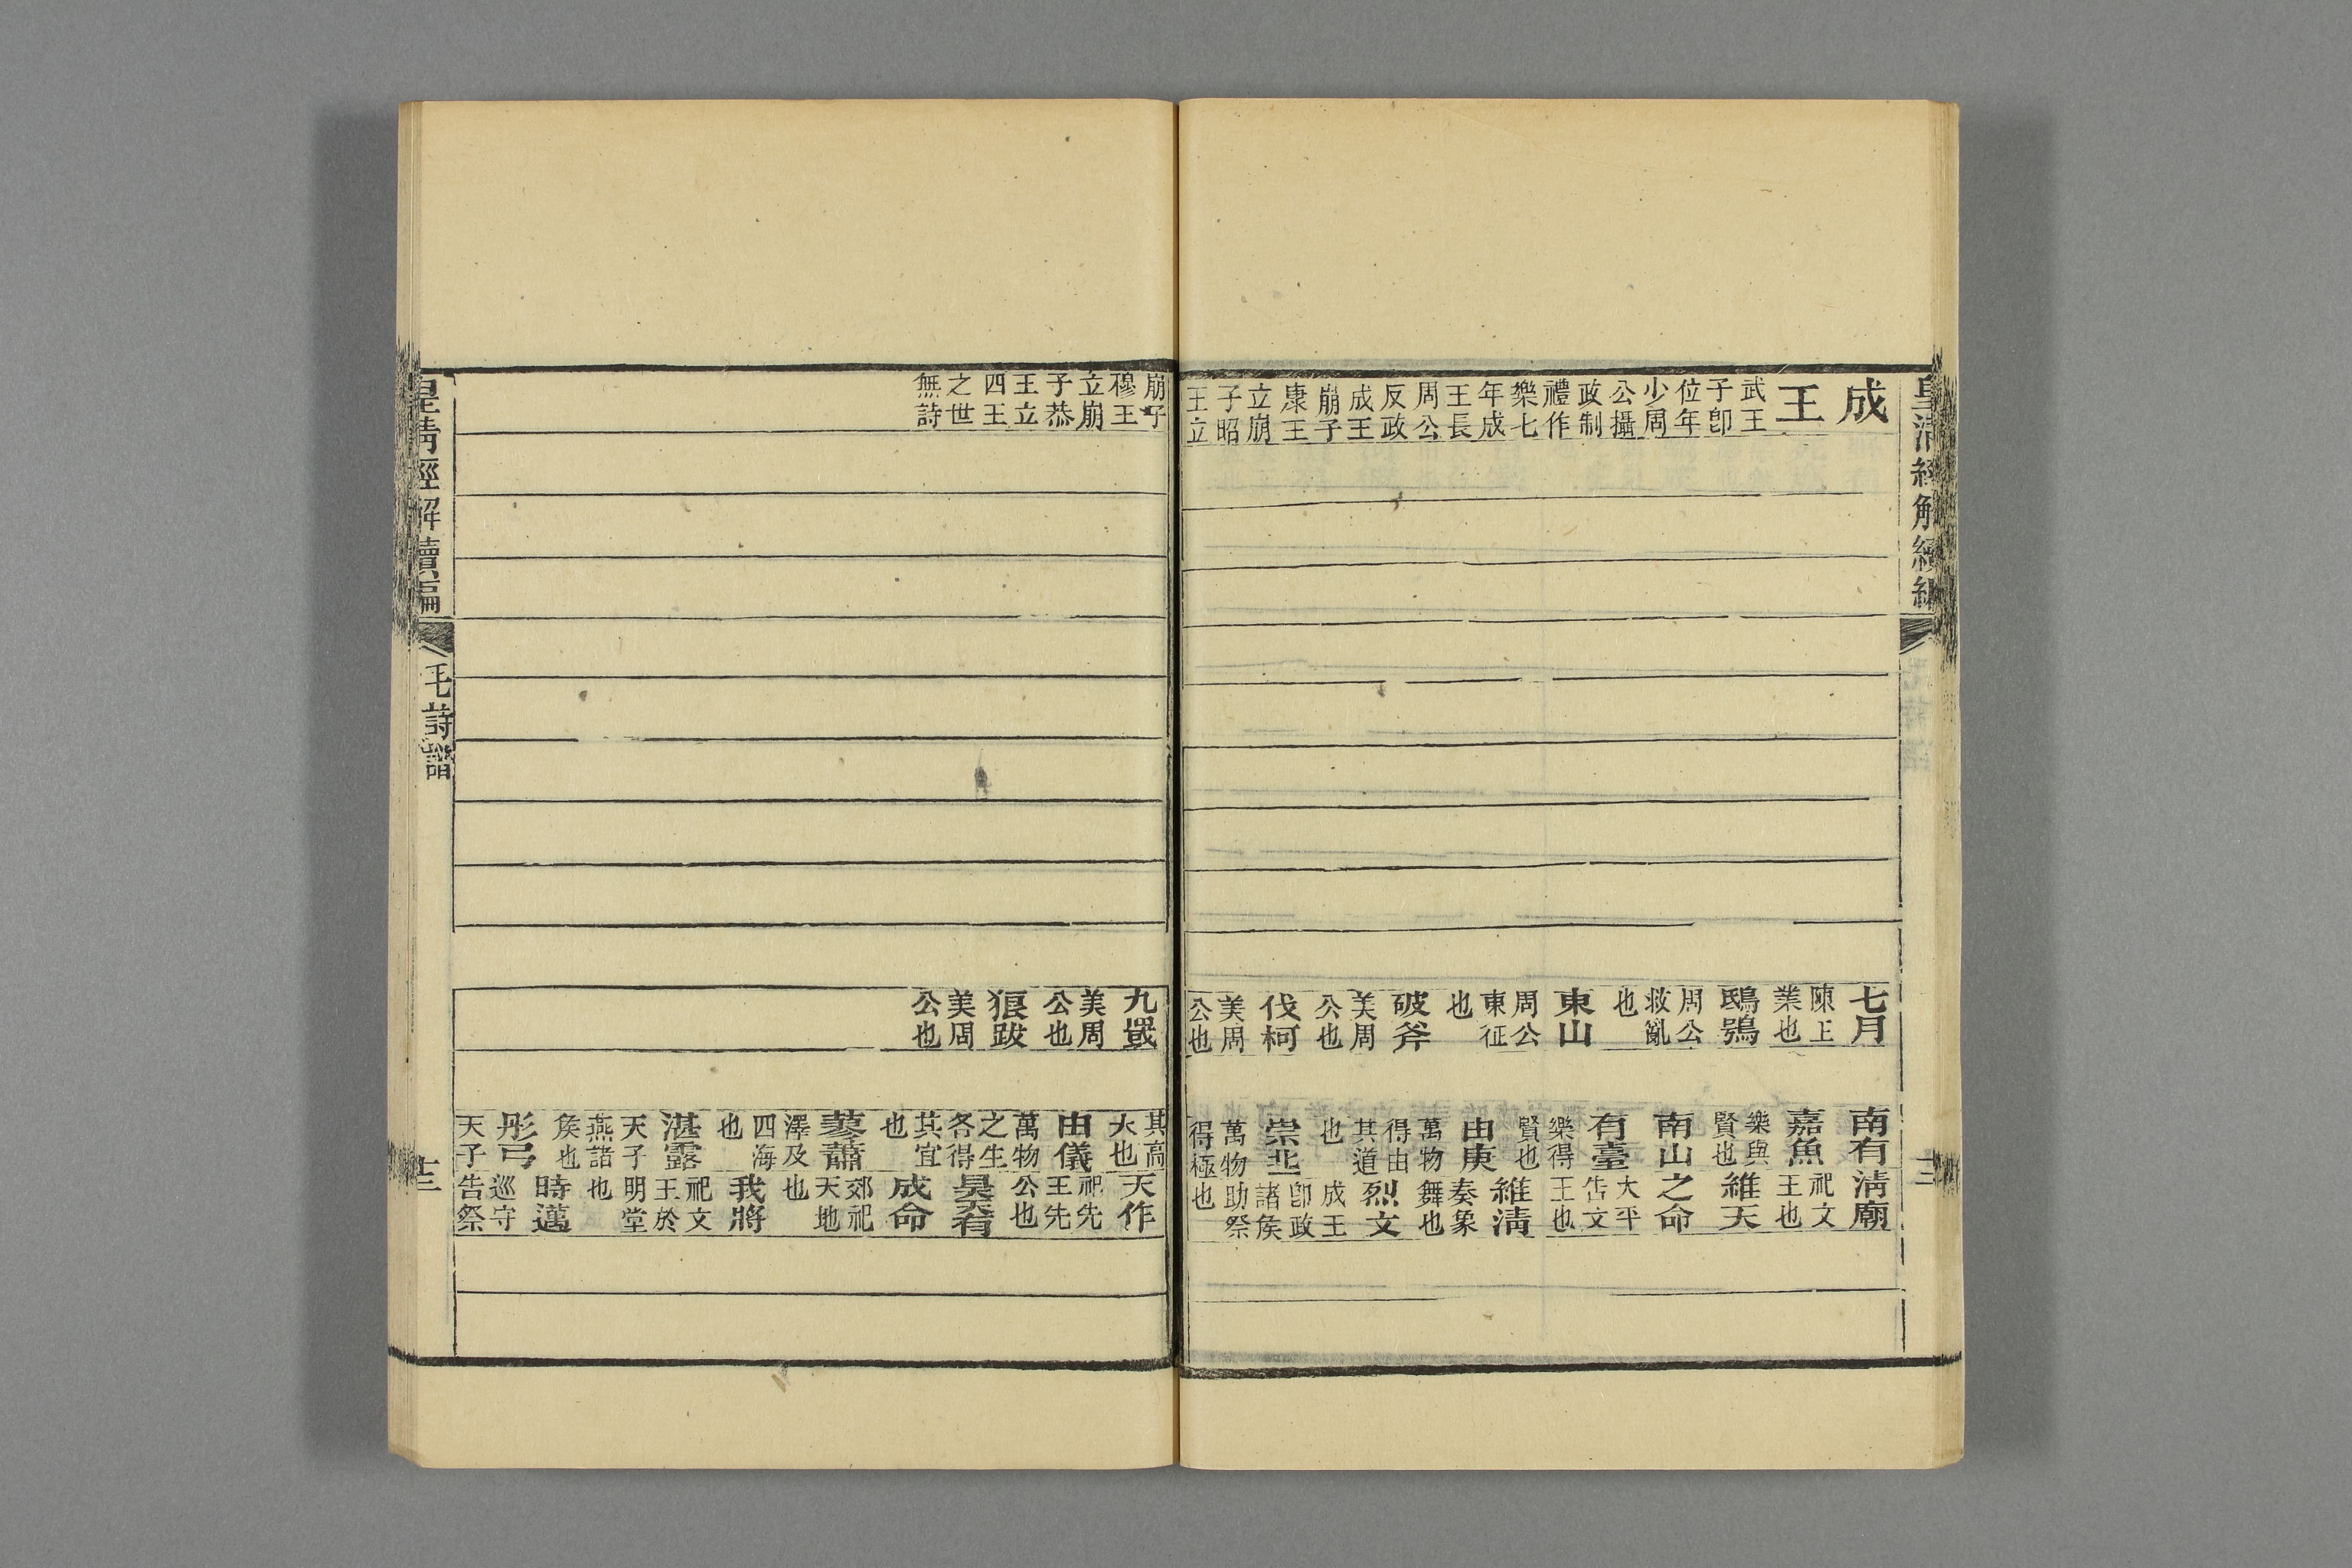 皇清經解續編
成王
武王子卽位年少周公攝政制禮作樂七年成王長周公反政成王崩子康王崩子昭王立
七月
陳王業也
鴟鴞
周公救亂也
東山
周公東征也
破斧
美周公也
伐柯
美周公也
南有嘉魚
樂與賢也
南山有臺
樂得賢也
由庚
萬物得由其道也
崇丘
萬物得極
清廟
祀文王也
維天之命
大平告文王也
維清
奏象舞也
烈文
成王卽政諸矦助祭也
崩子穆王立崩子恭王立四王之世無詩
九罭
美周公也
狼跋
美周公也
其高大也
由儀
萬物之生各得其宜也
蓼蕭
澤及四海也
湛露
天子燕諸矦也
彤弓
天子
天作
祀先王先公也
昊天有成命
郊祀天地也
我將
祀文王於明堂也
時邁
巡守告祭
皇清經解續編
毛詩譜
十三